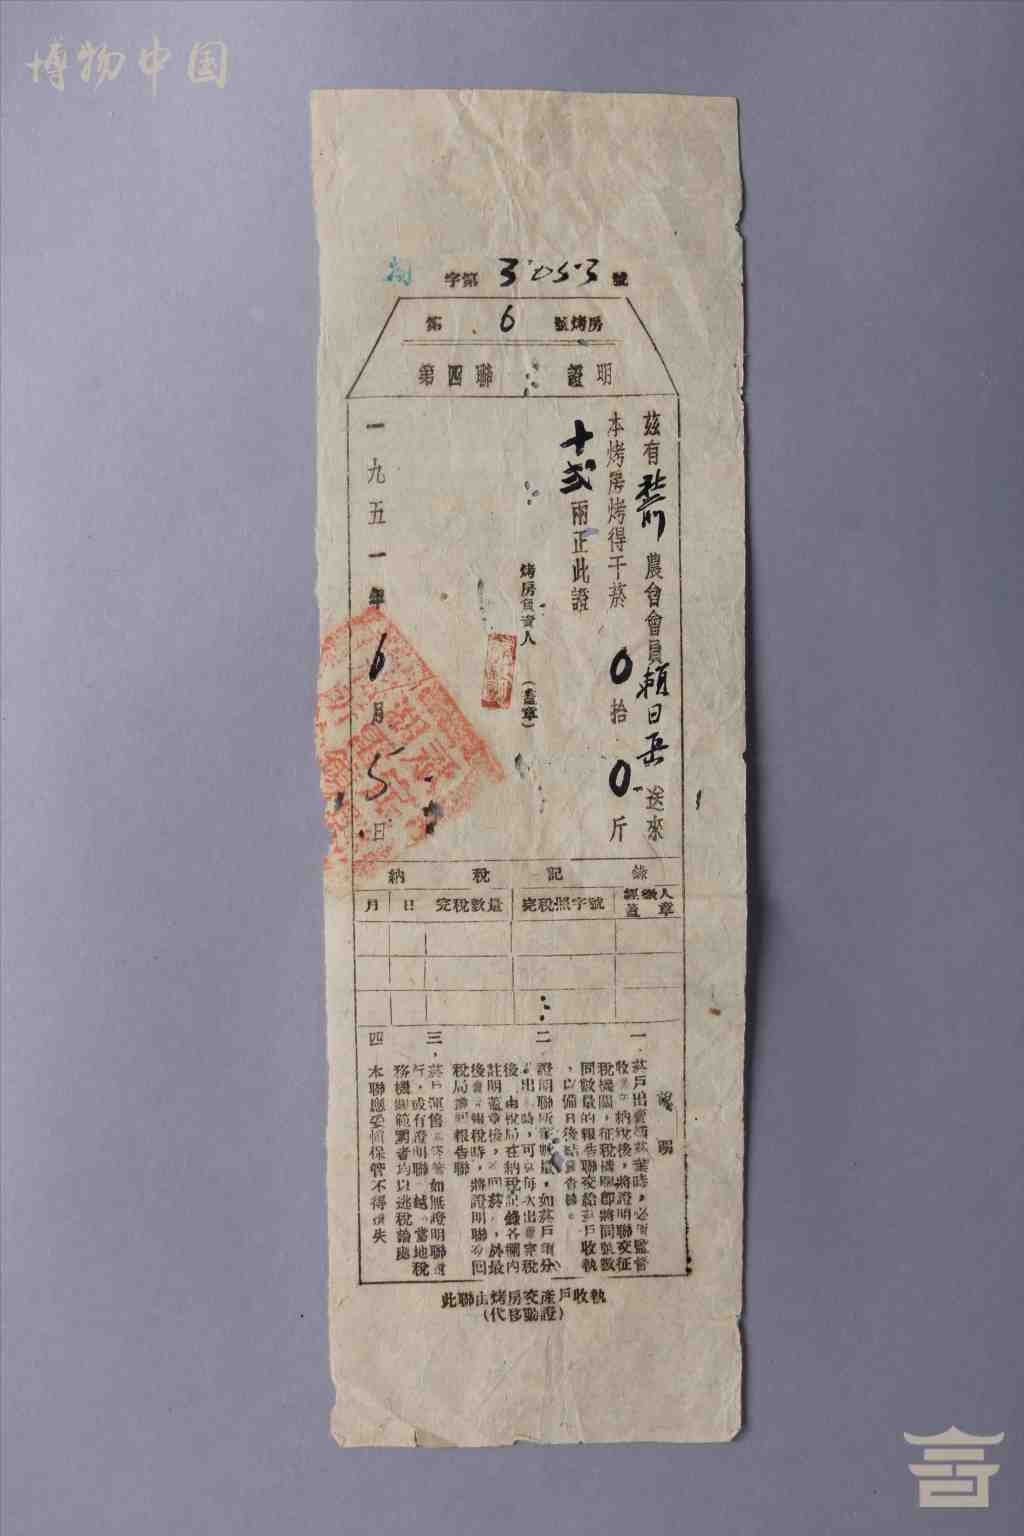 博物中国
字第 3053 號
第 6 號烤房
第四聯 證明
茲有 農會會員賴日岳送來
本烤房烤得干菸0拾0斤
十弍兩正此證
烤房負責人 (蓋章)
一九五一年6月5日
納稅記錄
月 日 完稅數量 完稅照字號 經徵人蓋章
說明
一.菸戶出賣 菸葉時,必 監督
收 納稅後,將證明聯交征
稅機關,征稅機關即將同 數
同數量的報告聯交給菸戶收執
,以備日後結 查 。
二 證明聯所 數量,如菸戶 分
出 時,可 每次出賣完稅
後 由稅局在納稅記錄各欄內
註明蓋章後, 回菸 ,於最
後賣 報稅時,將證明聯 回
稅局 報告聯
三,菸戶運售 如無證明聯
行,或有證明聯 越 當地稅
務機關範圍者均以逃稅論處
四 本聯應妥慎保管不得遺失
此聯由烤房交產戶收執
(代移動證)